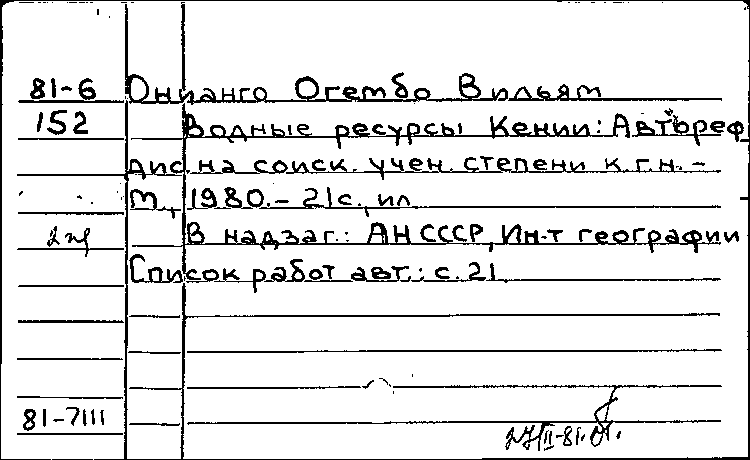 81-6 Онианго Огембо Вильям
152 Водные ресурсы Кении: Автореф.
дис. на соиск. учен. степени к.г.н. –
М., 1980. – 21 с., ил.
В надзаг.: АН СССР, Ин-т географии
Список работ авт.: с. 21.
81-7111